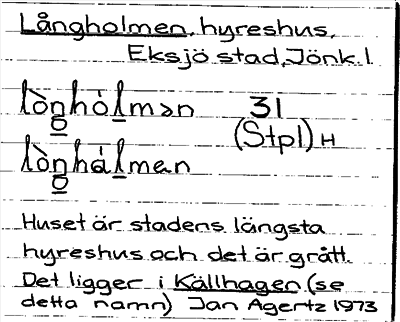 Långholmen, hyreshus,
Eksjö stad, Jönk. l.
lòn̥hòl̠mən 31
(Stpl) H
lòn̥hàl̠men
Huset är stadens längsta
hyreshus och det är grått.
Det ligger i Källhagen (se
detta namn) Jan Agertz 1973